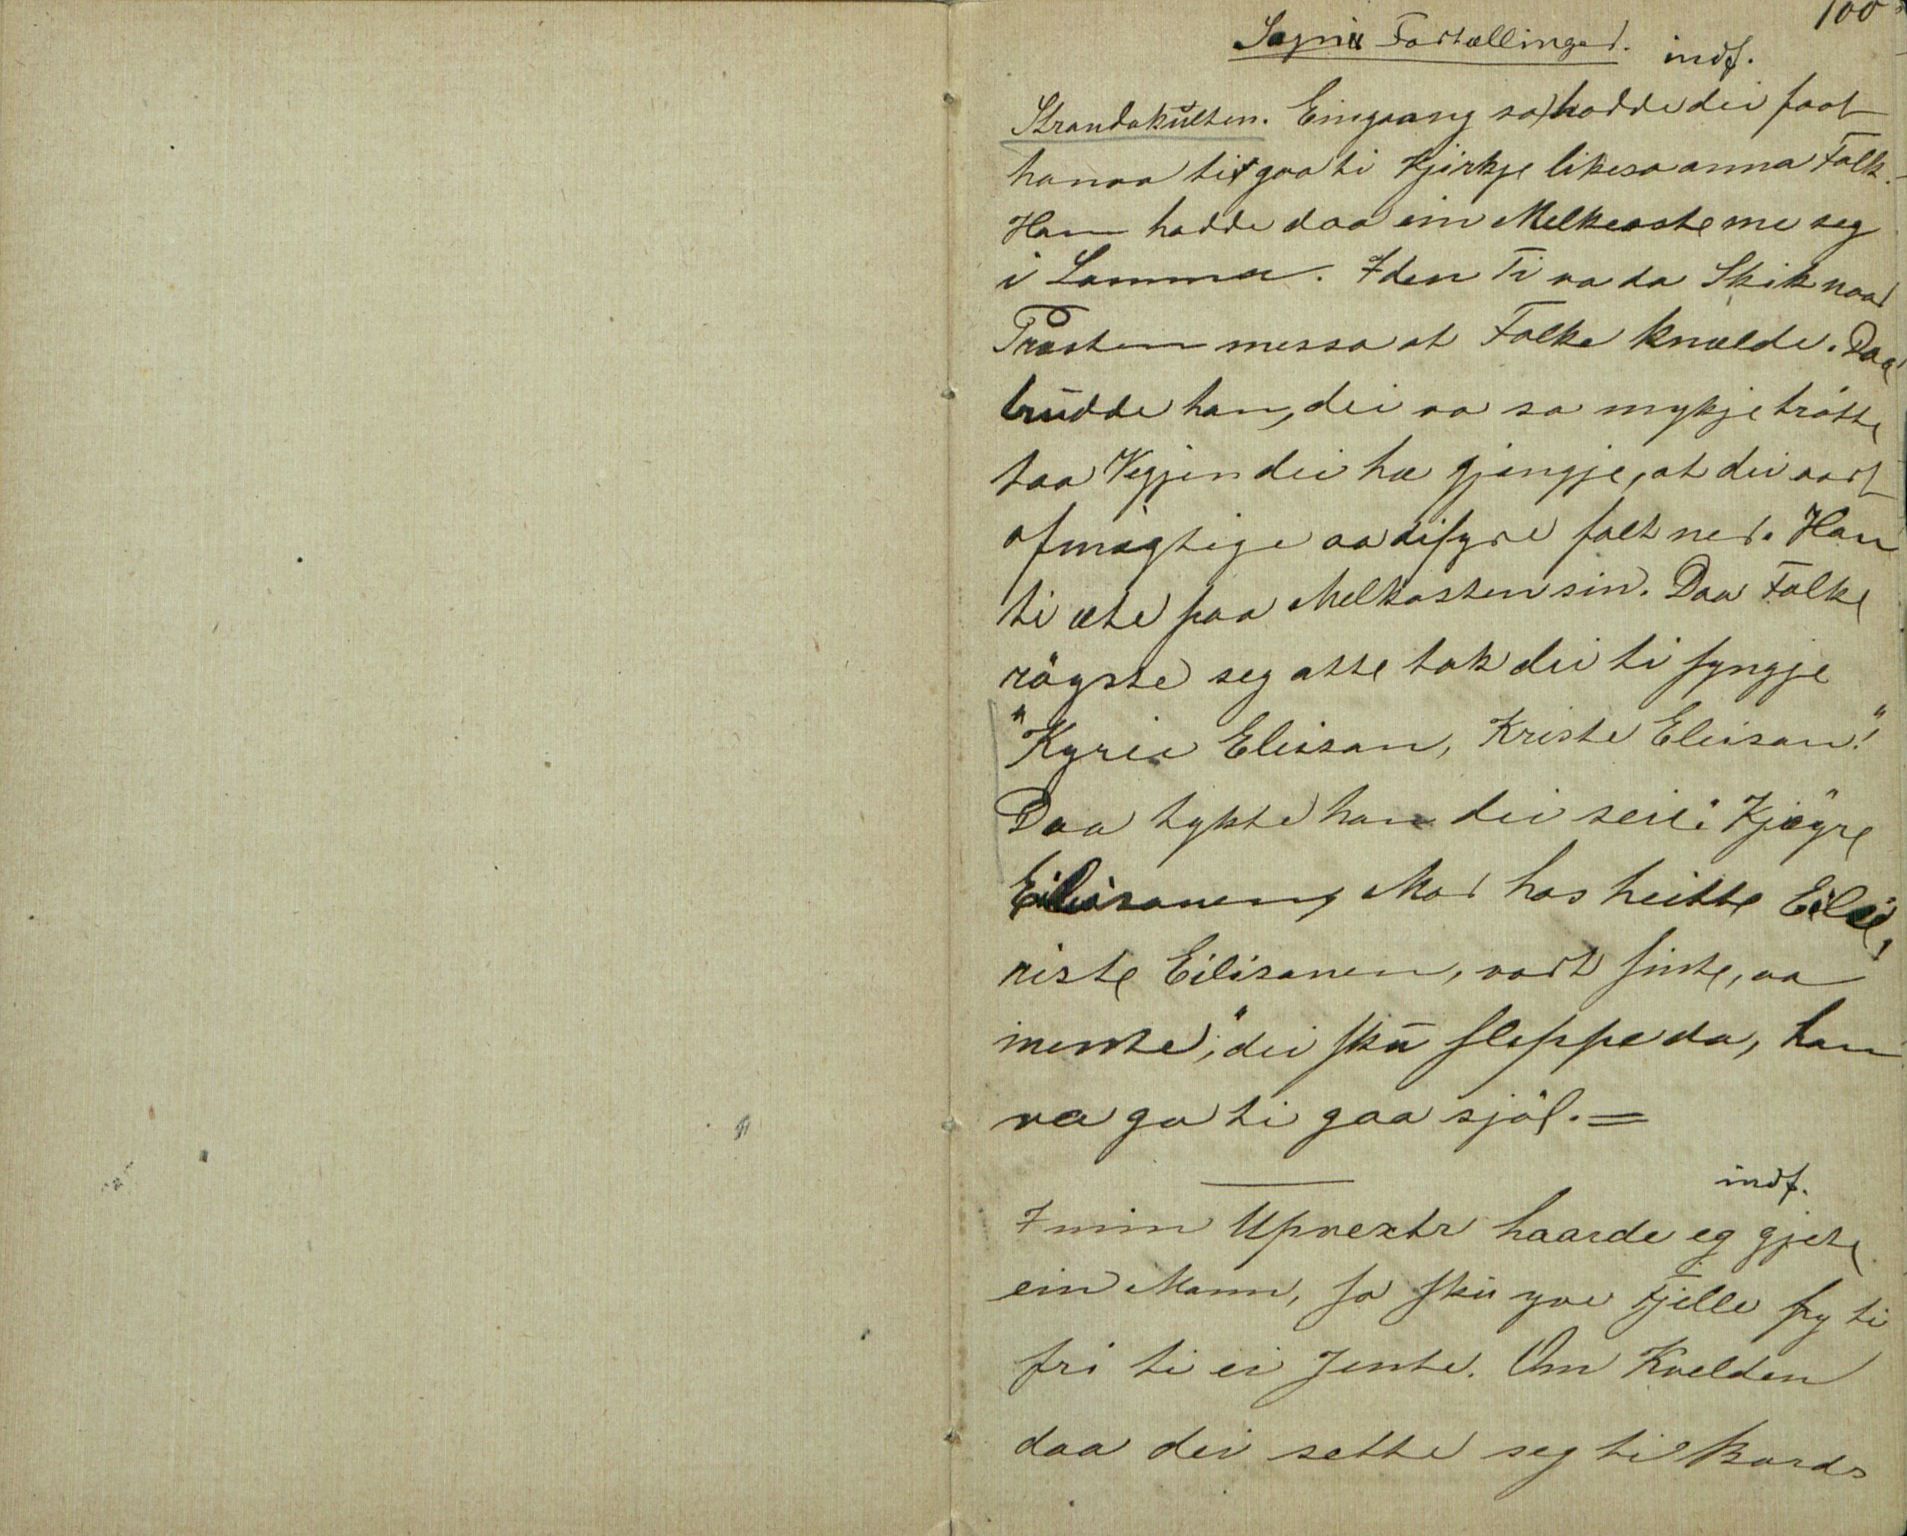 100
Sogn Fortællinger. indf.
Strandakulten. Eingaang so hadde dei faat
hanaa ti gaa ti Kjirkje likeso anna Folk.
Han hadde daa ein Melkeoste me seg
i Lomma. I den Ti va da Skik naar
Præsten messa at Folke knælde. Daa
trudde han, dei va so mykje trötte
taa Vegjen dei hæ gjengje, at dei vart
afmægtige aa difyre falt ned. Han
ti ete paa Melkosten sin. Daa Folke
rögste seg atte tok dei ti syngje
"Kyrie Eleisan, Kriste Eleisan!"
Daa tykte han dei seie: "Kjöyre
Eilisanen, Mor has heitte Eilie,
riste Eilisanen, vart sinte, aa
mente, "dei sku sleppe da, han
va go ti gaa sjöl. =
indf.
I min Upvextr haarde eg gjete
ein Mann, so sku yve Fjelle fy ti
fri ti ei Jente. Om Kvelden
daa dei sette seg ti Bords